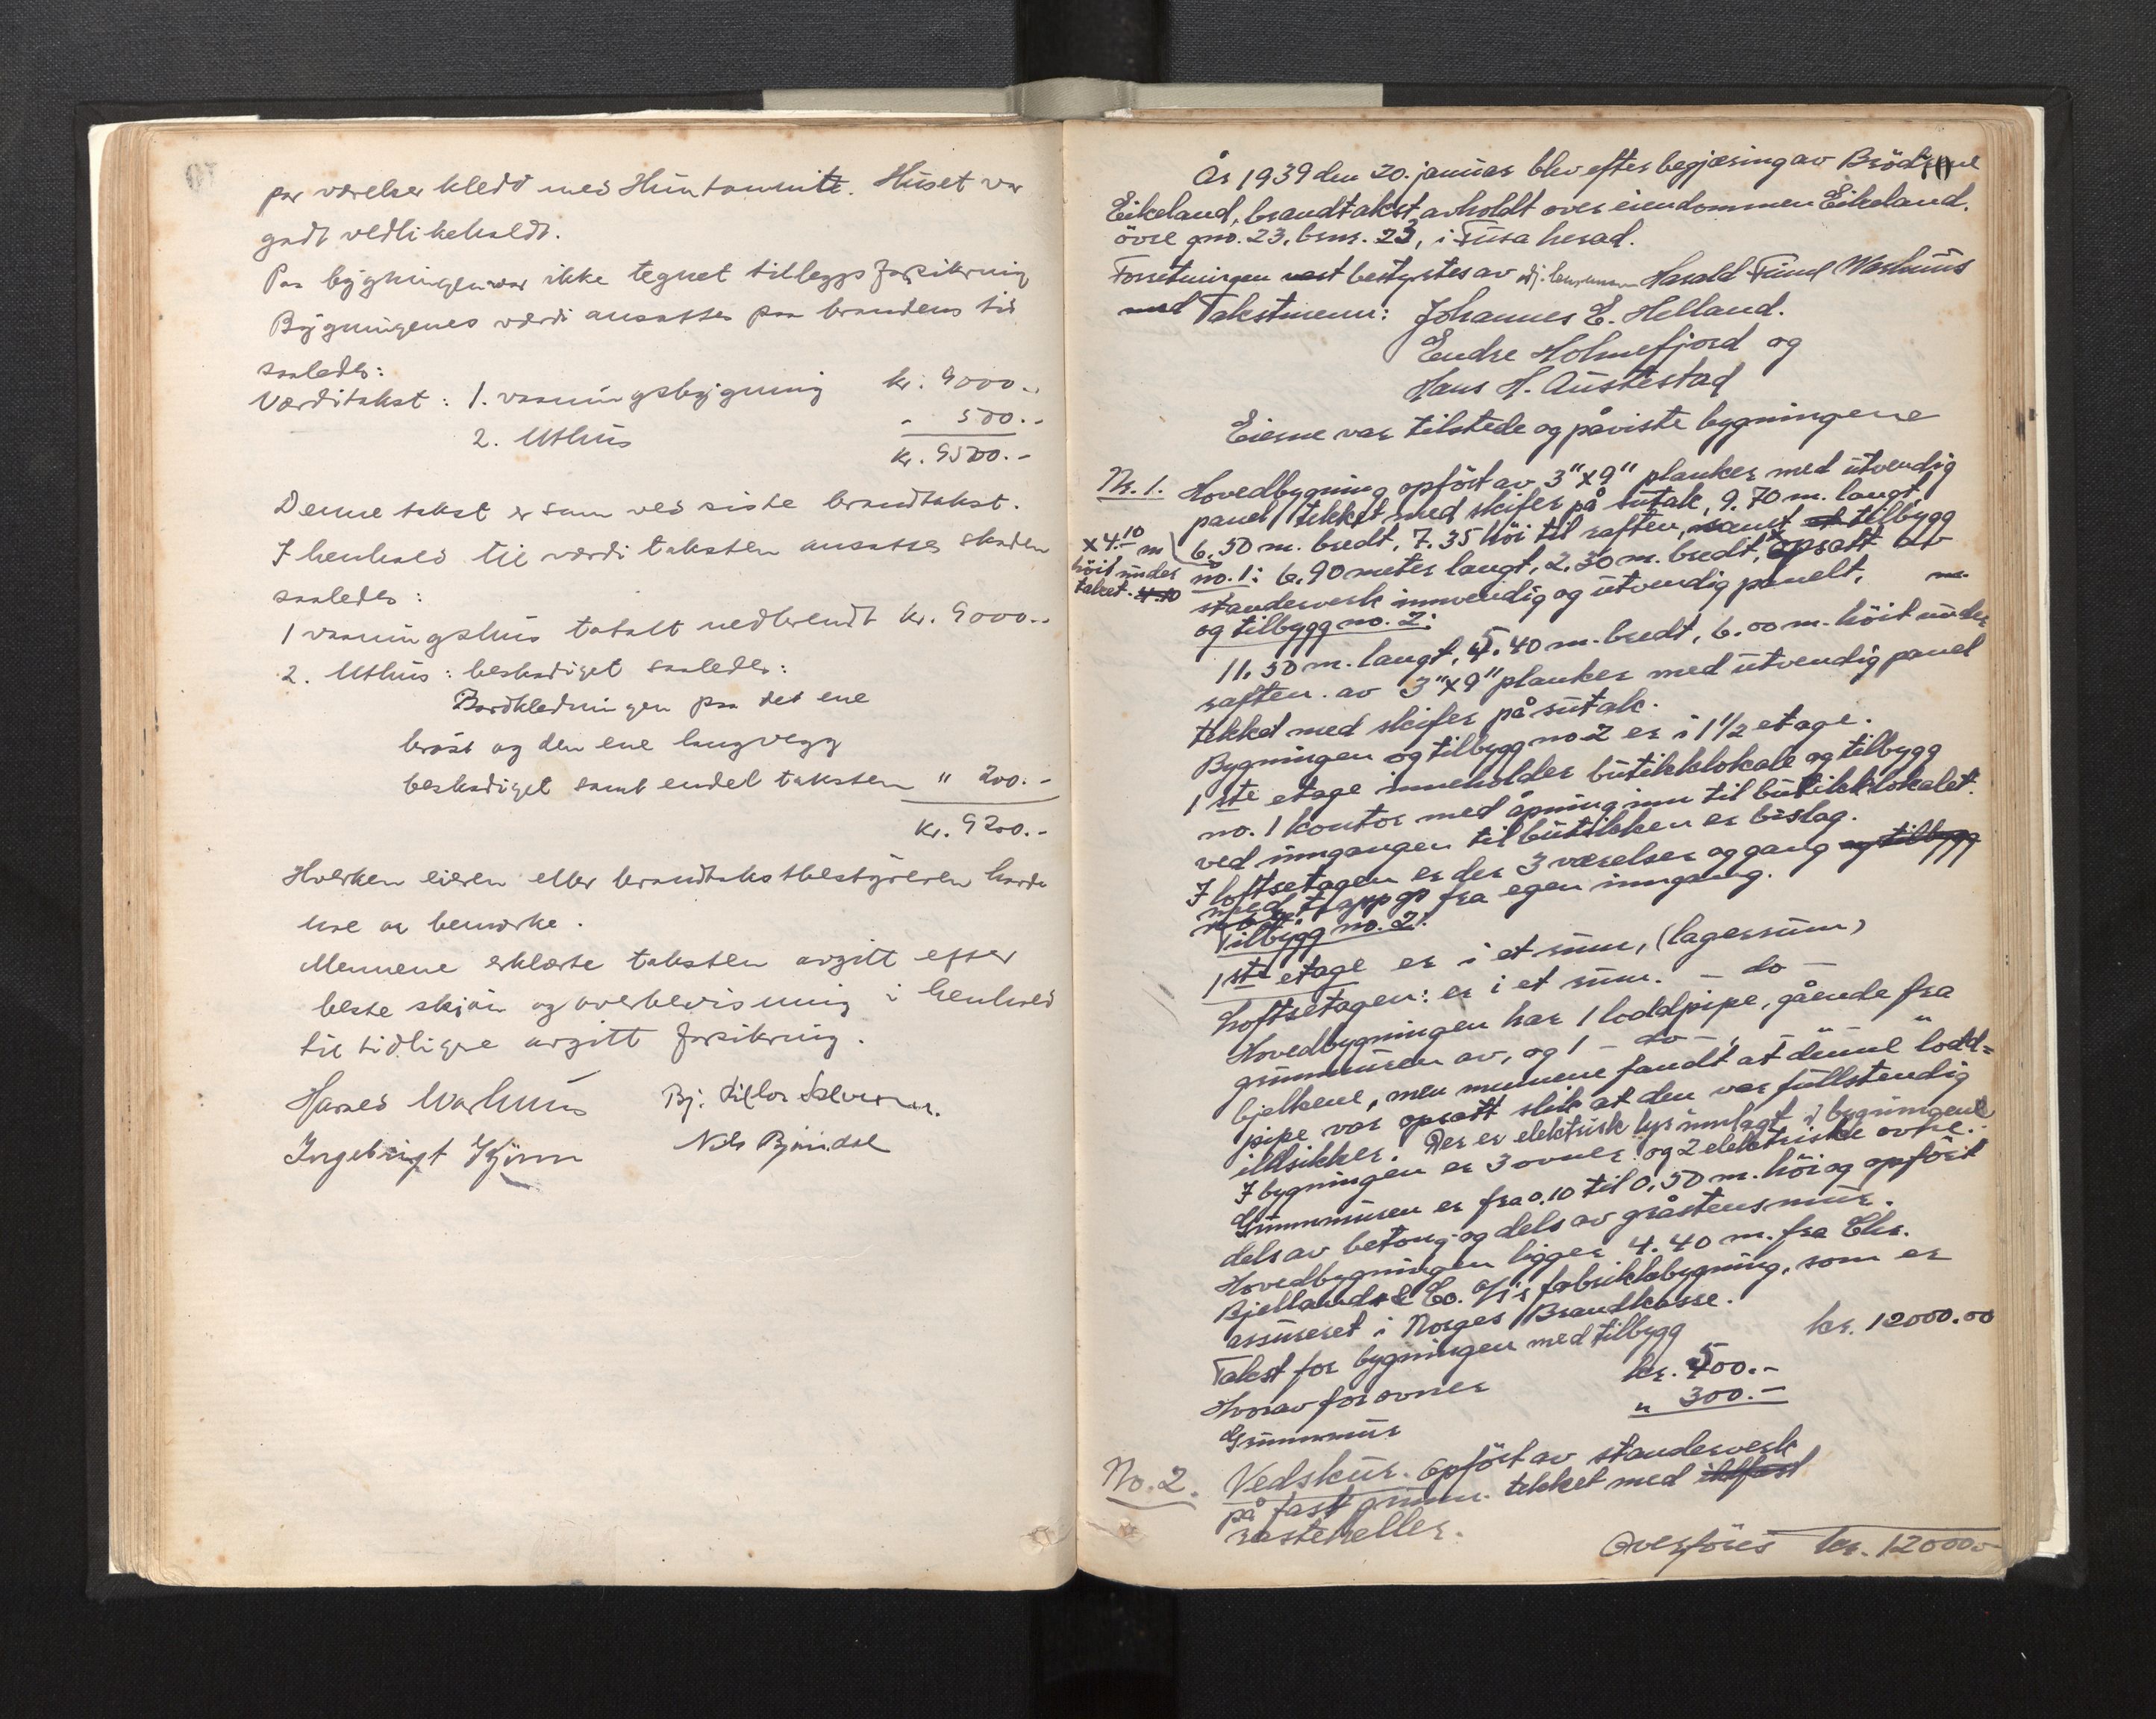 par værelser kledt med Huntonnitt. Huset var
godt vedlikeholdt.
Paa bygningen var ikke tegnet tilleggsforsikring
Bygningenes værdi ansattes paa brandens tid
saaledes:
Værditakst: 1. vaaningsbygning kr. 9000.-
2. Uthus - 500.-
kr. 9500.-
Denne takst er som ved siste brandtakst.
I henhold til værditaksten ansattes skaden
saaledes:
1 vaaningshus totalt nedbrendt kr. 9000.-
2. Uthus: beskadiget saaledes:
Bordkledningen paa det ene
brøst og den ene langvegg
beskadiget samt endel taksten " 200.-
kr. 9200.-
Hverken eieren eller brandtakstbestyreren hadde
noe at bemerke.
Mennene erklærte taksten avgitt efter
beste skjøn og overbevisning i henhold
til tidligere avgitt forsikring.
Harald Warhuus Bj.
Ingebrigt Nils Bjørndal
10
År 1939 den 20. januar blev efter begjæring av Brödrene
Eikeland, brandtakst avholdt over eiendommen Eikeland,
övre gno. 23, brnr. 23, i Fusa herad.
Forretningen bestyrtes av Harald Warhuus
med Takstmenn: Johannes E. Helland.
Endre Holmefjord og
Hans H. Austestad
Eierne var tilstede og påviste bygningene
Nr. 1. Hovedbygning opfört av 3"x9" planker med utvendig
panel tekket med skifer på sutak, 9.70 m. langt,
6.50 m. bredt, 7.35 höi til raften, samt et tilbygg
x 4.10 m
höit under
taket. 4.10
no. 1: 6.90 meter langt, 2.30 m. bredt, opsatt av
standerverk innvendig og utvendig panelt,
og tilbygg no. 2:
11.50 m. langt, 5.40 m. bredt, 6.00 m. höit under
raften. av 3"x9" planker med utvendig panel
tekket med skifer på sutak.
Bygningen og tilbygg no 2 er i 1 1/2 etage.
1ste etage inneholder butikklokale og tilbygg
no. 1 kontor med åpning inn til butikklokalet.
ved inngangen til butikken er bislag.
I loftsetagen er der 3 værelser og gang og tilbygg
med trapp op fra egen inngang.
Tilbygg no. 2:
1ste etage er i et rum, (lagerrum)
Loftsetagen: er i et rum. - do -
Hovedbygningen har 1 loddpipe, gående fra
grunnmuren av, og 1 - do -, - " - "
bjelkene, men mennene fandt at denne lodd=
pipe var opsatt slik at den var fullstendig
ildsikker. Der er elektrisk lys innlagt i bygningene
I bygningen er 3 ovner. og 2 elektriske ovne.
Grunnmuren er fra 0.10 til 0.50 m. höi og opfört
dels av betong og dels av gråstensmur.
Hovedbygningen ligger 4.40 m. fra Chr.
Bjelland & Co. A/s fabrikkbygning, som er
assureret i Norges Brandkasse.
Takst for bygningen med tilbygg kr. 12000.00
Hvorav for ovner kr. 500.-
Grunnmur " 300.-
No. 2. Vedskur. opfört av standerverk
på fast grunn. tekket med ildfast
rastekeller.
Overföres kr. 12000.-